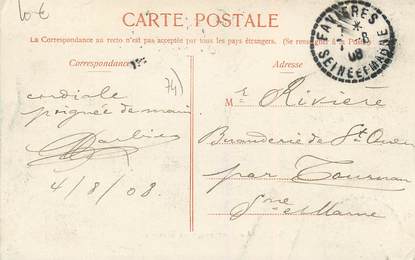 10€
CARTE POSTALE
La Correspondance au recto n'est pas acceptée par tous les pays étrangers. (Se renseigner à la Poste)
FAVIERES
8
08
SEINE ET MARNE
Correspondance
Adresse
cordiale
poignée de main
4/8/08
Mr Rivière
de St Ouen
par Tournan
Sne et Marne